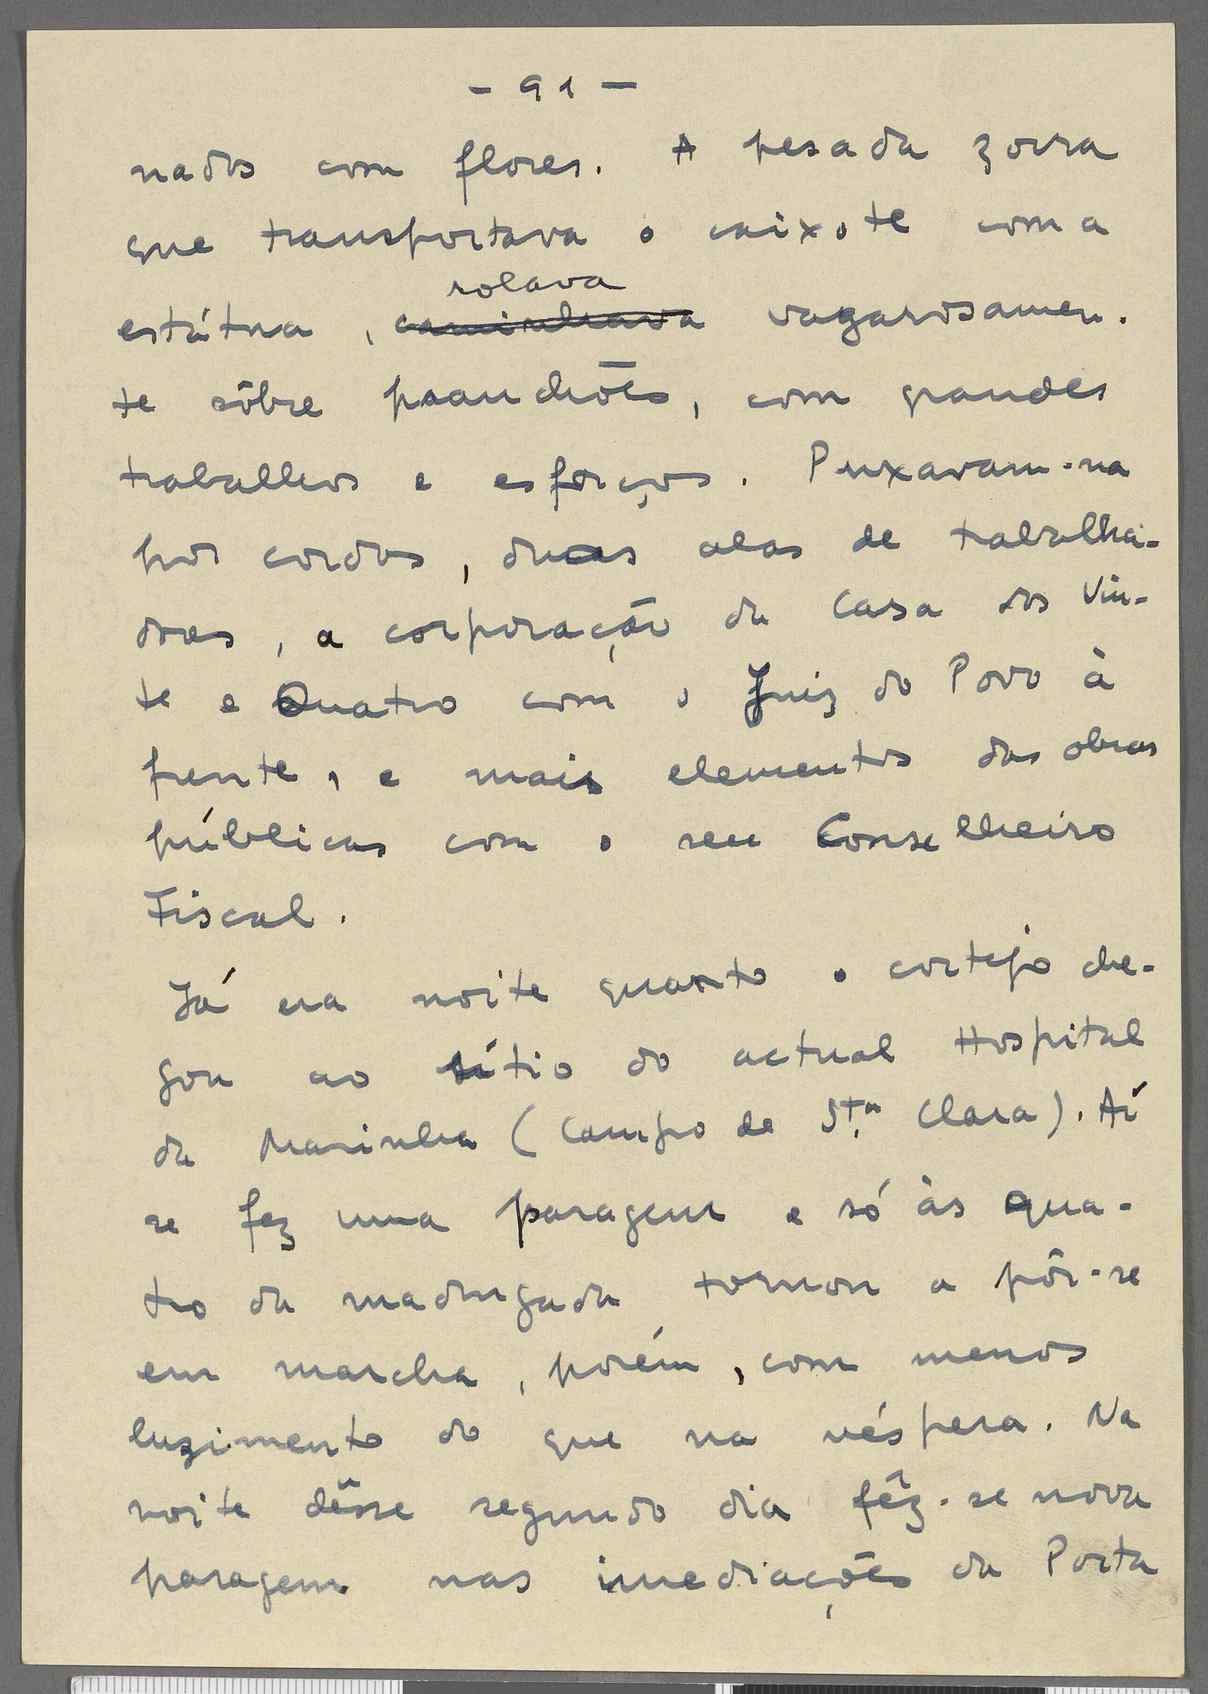 - 91 -
nados com flores. A pesada zorra
que transportava o caixote com a
rolava
estátua, caminhava vagarosamen-
te sôbre pranchões, com grandes
trabalhos e esforços. Puxavam-na
por cordas, duas alas de trabalha-
dores, a corporação da Casa dos Vin-
te e Quatro com o Juiz do Povo à
frente, e mais elementos das obras
públicas com o seu Conselheiro
Fiscal.
Já era noite quanto o cortejo che-
gou ao sítio do actual Hospital
da Marinha (Campo de Sta. Clara). Aí
se fez uma paragem e só às qua-
tro da madrugada tornou a pôr-se
em marcha, porém, com menos
luzimento do que na véspera. Na
noite dêsse segundo dia fêz-se nova
paragem nas imediações da Porta